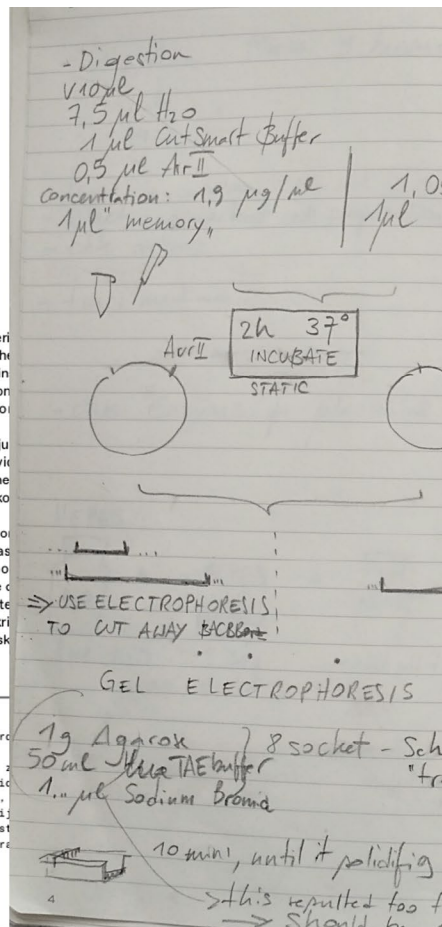 - Digestion
V10µl
7,5 µl H2O
1 µl CutSmart Buffer
0,5 µl AvrII
Concentration: 1,9 µg/µl
1µl "memory"
1,0
1µl
AvrII
2h 37°
INCUBATE
STATIC
=> USE ELECTROPHORESIS
TO CUT AWAY
GEL ELECTROPHORESIS
1g Agarose
50ml TAE buffer
1.. µl Sodium Bromid
8 socket - Sch
10 min, until it
this resulted too
Should b
4